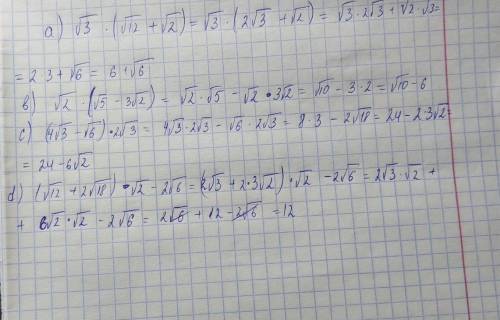 a) √3 · (√12 + √2) = √3 · (2√3 + √2) = √3 · 2√3 + √2 · √3 =
= 2 · 3 + √6 = 6 + √6
в) √2 · (√5 - 3√2) = √2 · √5 - √2 · 3√2 = √10 - 3 · 2 = √10 - 6
c) (4√3 - √6) · 2√3 = 4√3 · 2√3 - √6 · 2√3 = 8 · 3 - 2√18 = 24 - 2 · 3√2 =
= 24 - 6√2
d) (√12 + 2√18) · √2 - 2√6 = (2√3 + 2 · 3√2) · √2 - 2√6 = 2√3 · √2 +
+ 6√2 · √2 - 2√6 = 2√6 + 12 - 2√6 = 12